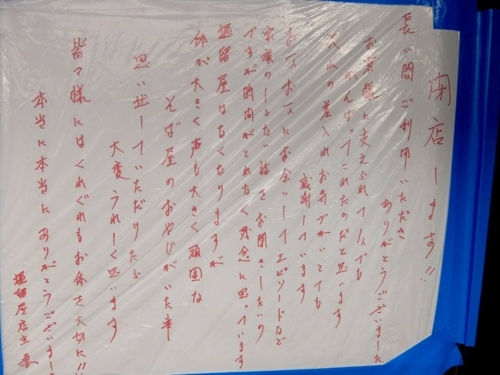 閉店します!!
長い間ご利用いただき
ありがとうございました
お客様に支えられて
がんばってこれたのだと思います
の差入れおみやげ とても
感謝しています
お一人お一人にお会いしてエピソードなど
家族の 話をお聞きしたいの
ですが時間がとれなく残念に思っています
堀留屋はなくなりますが
体が大きく声も大きく頑固な
そば屋のおやじがいた事
思い出していただけたら
大変うれしく思います
皆々様にはくれぐれもお体を大切に!!
本当に本当にありがとうございました
堀留屋店主